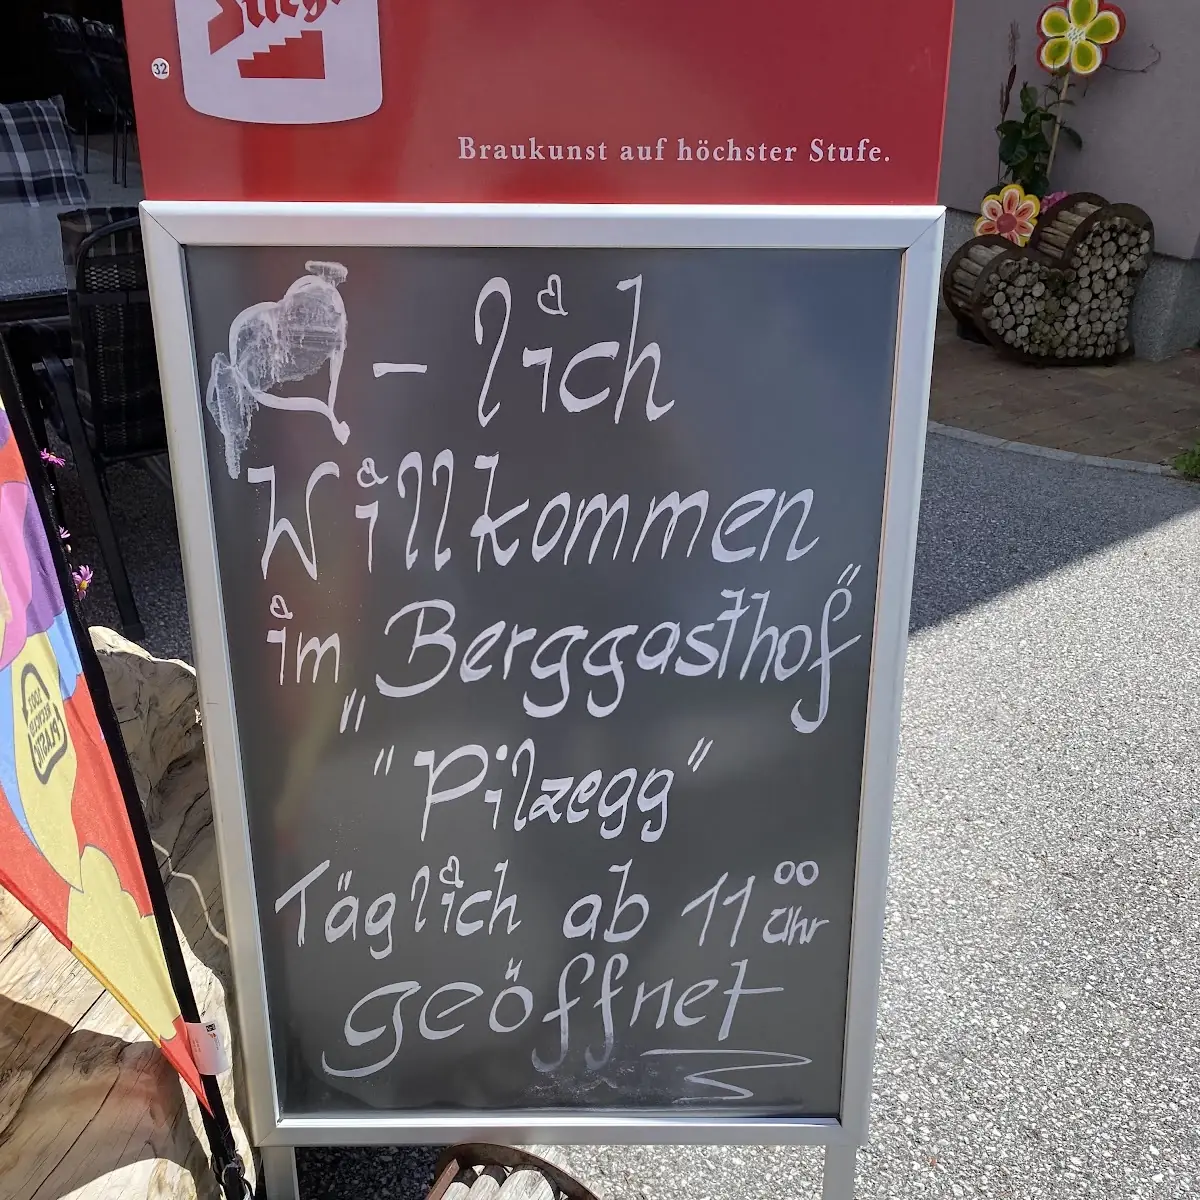 Stiegl
32
Braukunst auf höchster Stufe.
- lich
Willkommen
im Berggasthof
"Pilzegg"
Täglich ab 11⁰⁰ Uhr
geöffnet